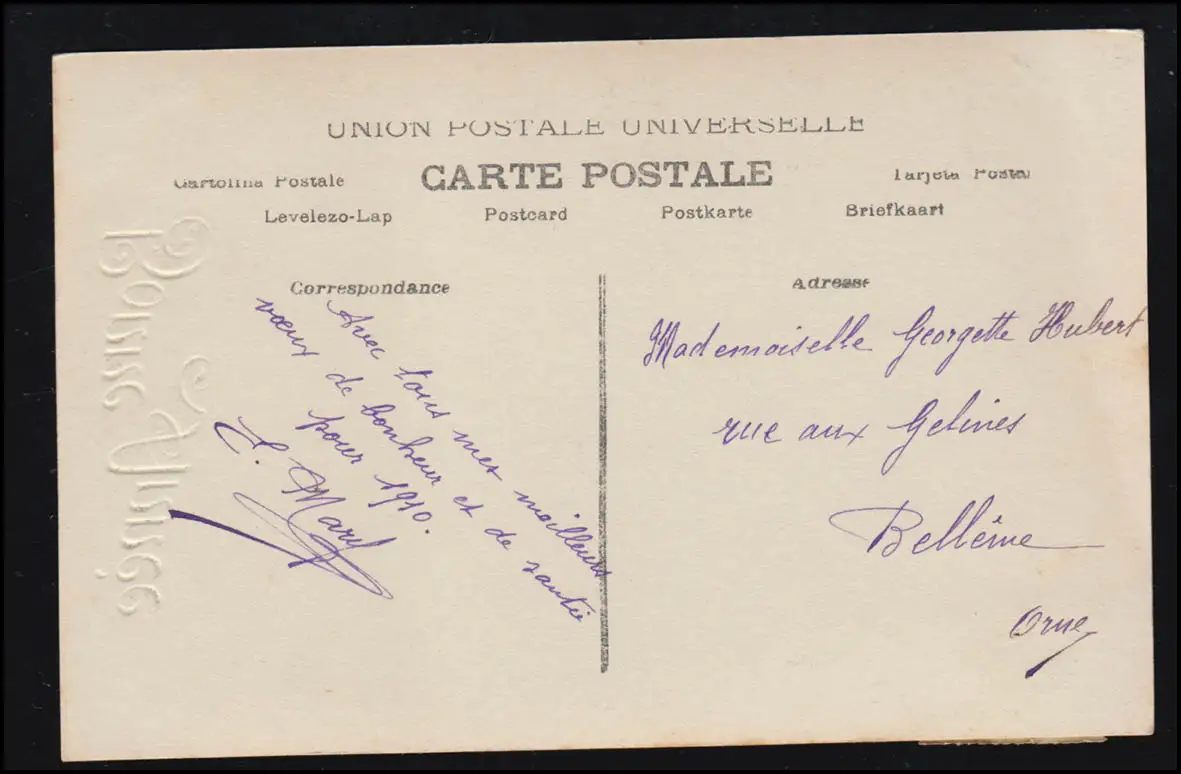 UNION POSTALE UNIVERSELLE
CARTE POSTALE
Cartolina Postale
Tarjeta Postal
Levelezo-Lap Postcard Postkarte Briefkaart
Correspondance
Avec tous mes meilleurs
vœux de bonheur et de santé
pour 1910.
Adresse
Mademoiselle Georgette Hubert
rue aux Gelines
Bellême
Orne
Bonne Année